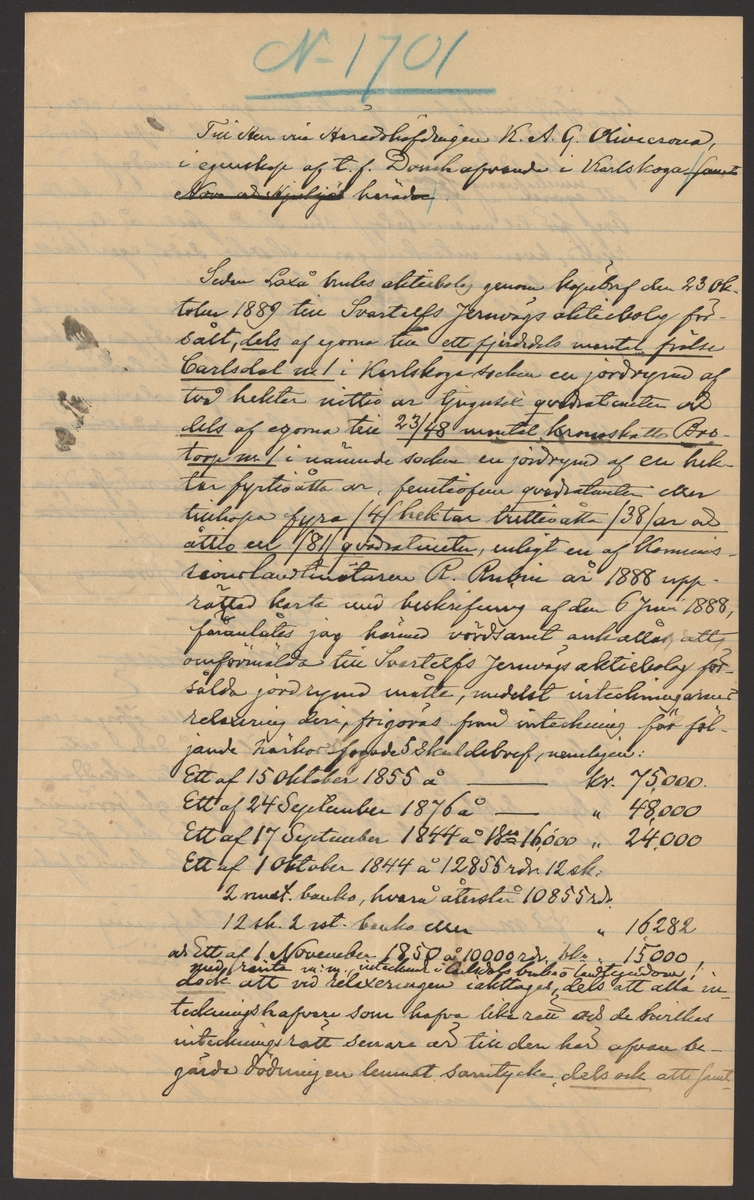 N- 1701
Till Herr vice Häradshöfdingen K. A. G. Olivecrona,
i egenskap af t. f. Domhafvande i Karlskoga samt
Nora och Hjulsjö härader.
Sedan Laxå bruks aktiebolag genom köpebref den 23 Ok-
tober 1889 till Svartelfs Jernvägsaktiebolag för-
sålt, dels af egorna till ett fjerdedels mantal frälse
Carlsdal nr. 1 i Karlskoga socken en jordrymd af
två hektar nittio ar tjugusex qvadratmeter och
dels af egorna till 23/48 mantal kronoskatte Bro-
torp nr. 1 i nämnde socken en jordrymd af en hek-
tar fyrtioåtta ar, femtiofem qvadratmeter eller
tillhopa fyra /4/ hektar trettioåtta /38/ ar och
åttioen /81/ qvadratmeter, enligt en af Kommis-
sionslandtmätaren R. Rubin år 1888 upp-
rättad karta med beskrifning af den 6 Juni 1888,
föranlåtes jag härmed vördsamt anhålla, att
omförmälda till Svartelfs Jernvägsaktiebolag för-
sålda jordrymd måtte, medelst inteckningarnes
relaxering deri, frigöras från inteckning för föl-
jande härhos fogade 5 skuldebref, nemligen:
Ett af 15 Oktober 1855 å — kr. 75,000.
Ett af 24 September 1876 å — " 48,000
Ett af 17 September 1844 å 16,000 " 24,000
Ett af 1 Oktober 1844 å 12855 rdr. 12 sk.
2 rnst. banko, hvarå återstå 10855 rdr.
12 sk. 2 rst. banko eller " 16282
och Ett af 1 November 1850 å 10000 rdr. bko " 15000
med ränta m. m., intecknade i Carlsdals bruk o landtegendom!
dock att vid relaxeringen iakttages, dels att alla in-
teckningshafvare som hafva lika rätt och de hvilkas
inteckningsrätt senare är till den här ofvan be-
gärda dödningen lemnat samtycke, dels ock att samt-